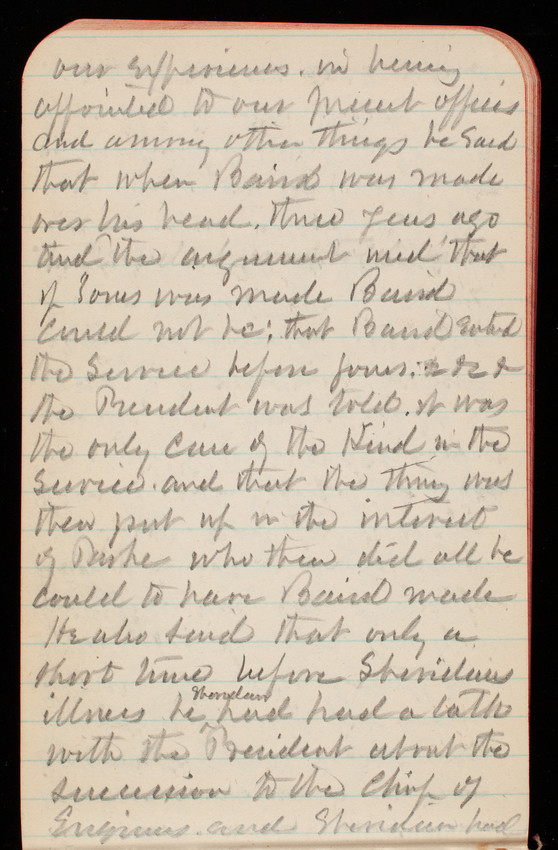 our experiences. in being
appointed to our present offices
and among other things he said
that when Baird was made
over his head. three years ago
and the argument used that
if Jones was made Baird
could not be; that Baird Entered
the Service before Jones. & & &
the President was told. it was
the only Case of the Kind in the
Service. and that the thing was
then put up in the interest
of Parke who then did all he
could to have Baird made
He also said that only a
short time before Sheridans
illness he Sheridan had had a talk
with the President about the
succession to the Chief of
Engineers. and Sheridan had